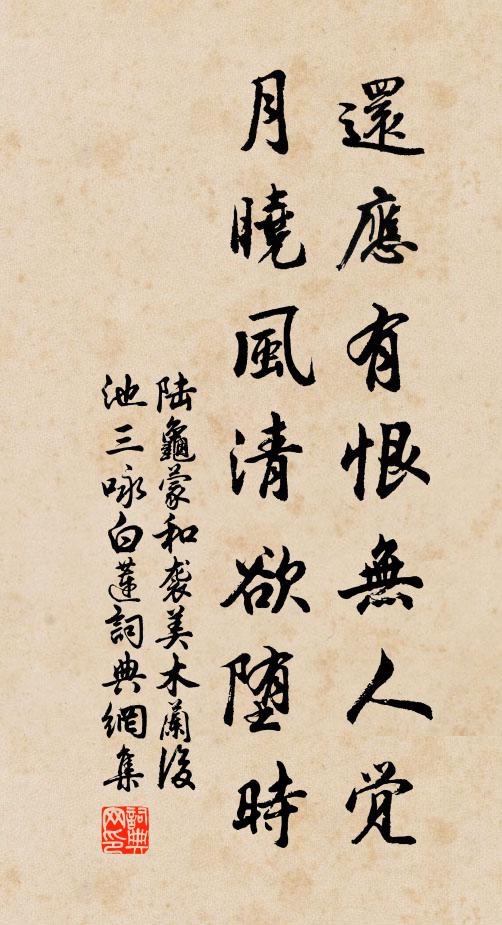 還應有恨無人覚
月曉風清欲堕時
陆龜蒙和袭美木蘭後
池三咏白蓮詞典網集
詞典
网印